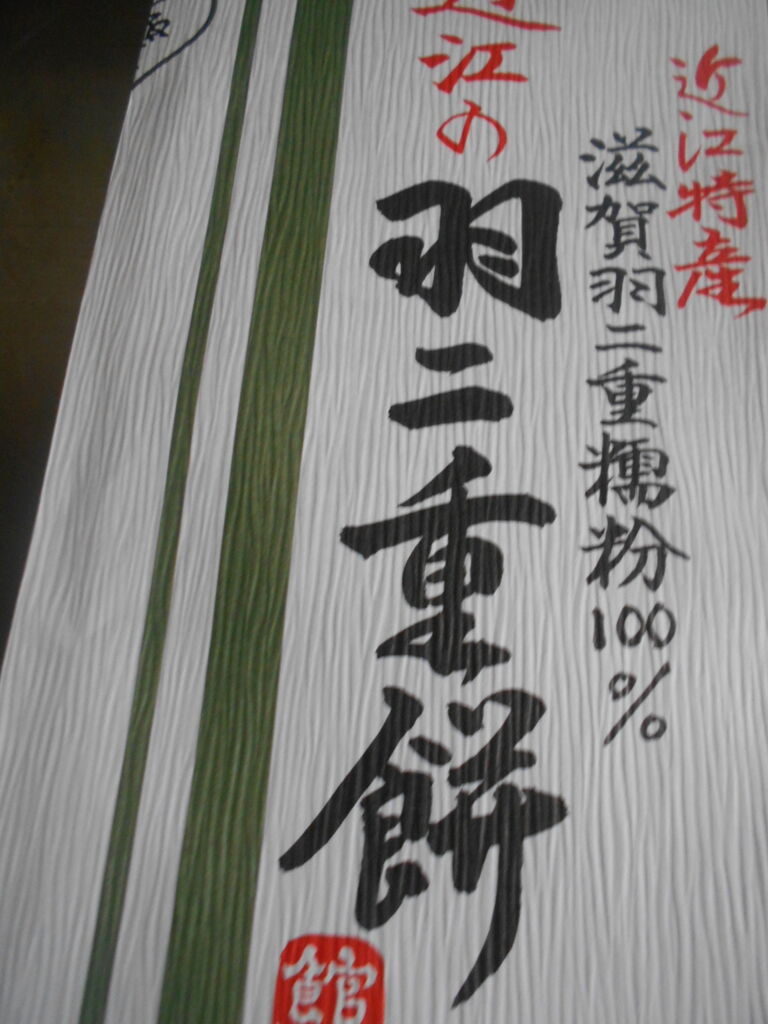 近江特産
滋賀羽二重糯粉100%
近江の
羽二重餅
館